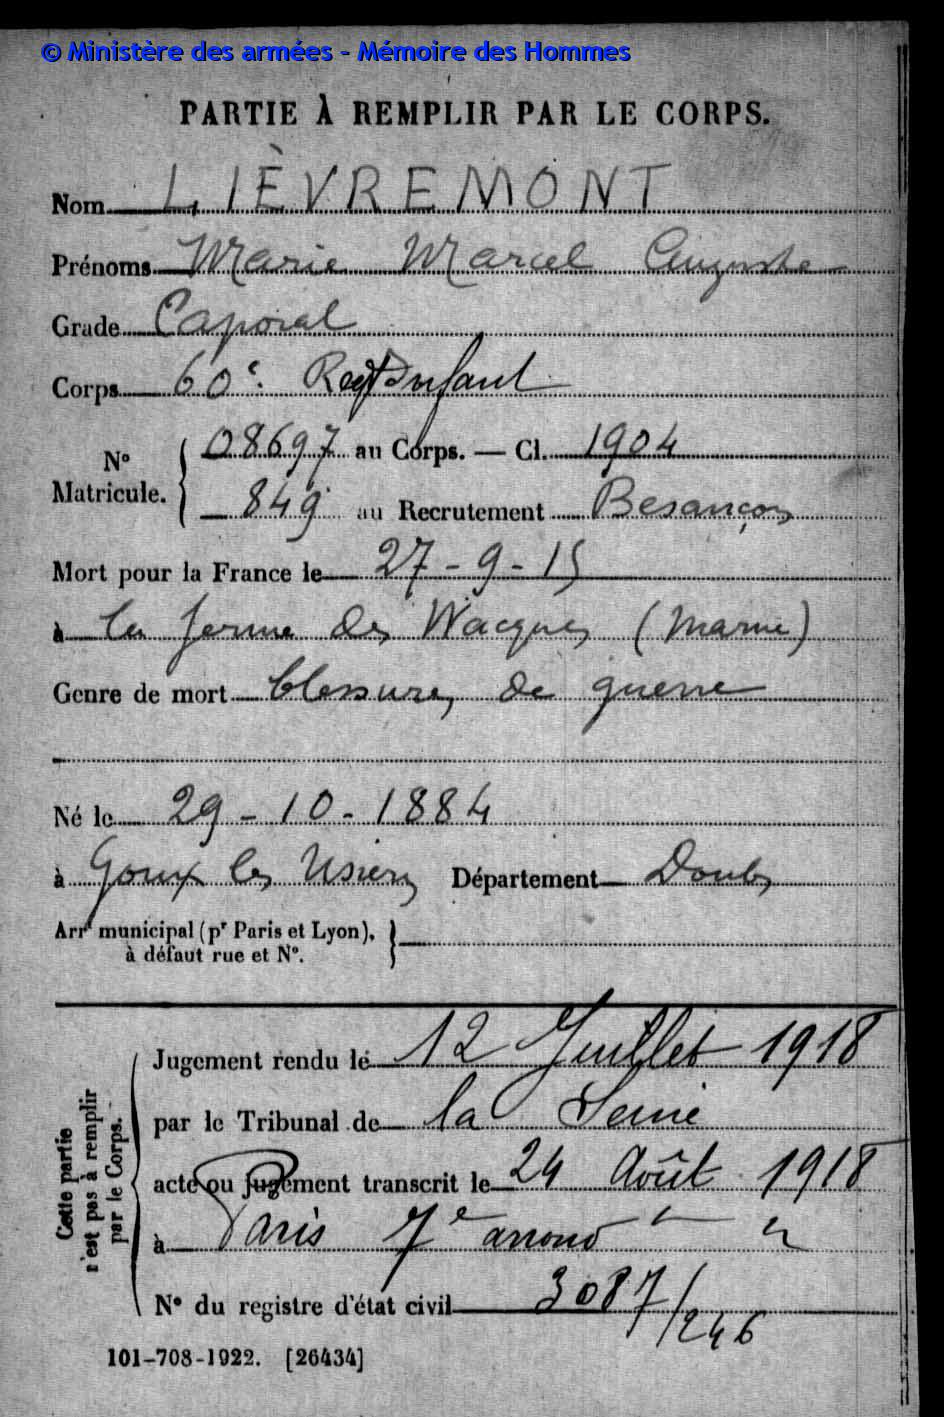 © Ministère des armées - Mémoire des Hommes
PARTIE À REMPLIR PAR LE CORPS.
Nom LIÈVREMONT
Prénoms Marie Marcel Auguste
Grade Caporal
Corps 60e Regt Infant
N° Matricule. 08697 au Corps. — Cl. 1904
849 au Recrutement Besançon
Mort pour la France le 27-9-15
à la ferme des Wacques (Marne)
Genre de mort blessures de guerre
Né le 29-10-1884
à Goux les Usiers Département Doubs
Arrt municipal (pr Paris et Lyon),
à défaut rue et N°.
Cette partie
n'est pas à remplir
par le Corps.
Jugement rendu le 12 Juillet 1918
par le Tribunal de la Seine
acte ou jugement transcrit le 24 Août 1918
à Paris 7e arrond
N° du registre d'état civil 3087/246
101-708-1922. [26434]